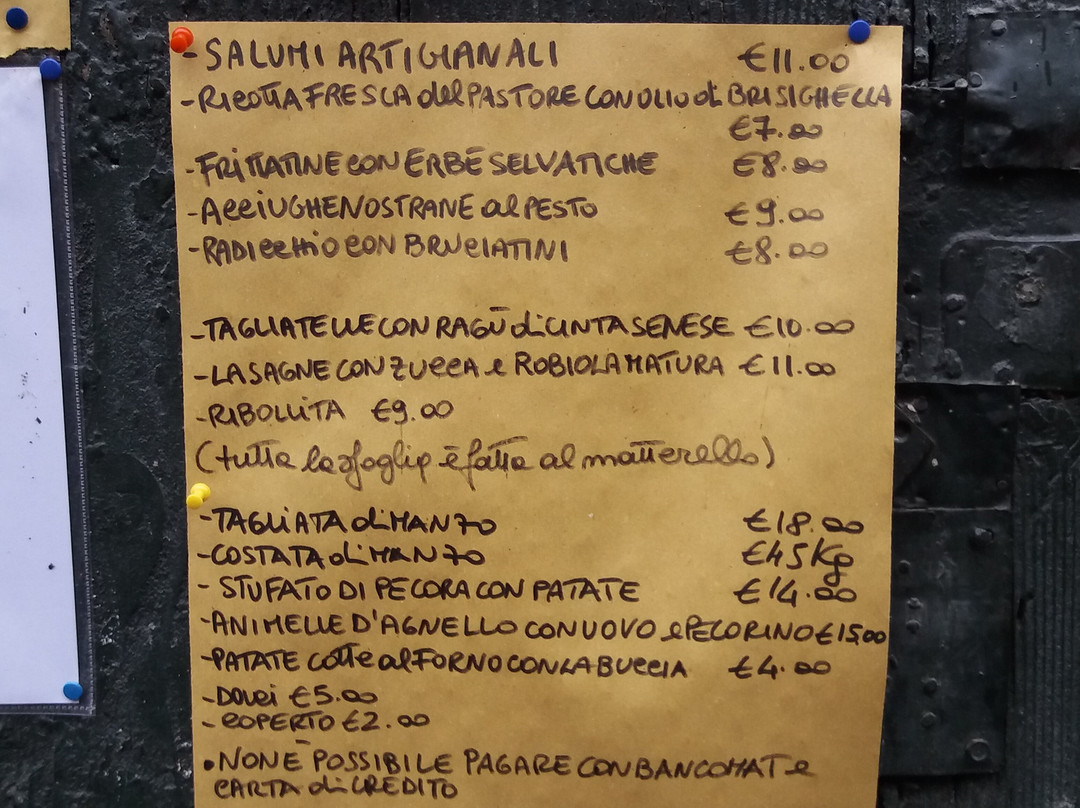 - SALUMI ARTIGIANALI €11.00
- RICOTTA FRESCA del PASTORE CON OLIO di BRISIGHELLA
€7.00
- FRITTATINE CON ERBE SELVATICHE €8.00
- ACCIUGHE NOSTRANE al PESTO €9.00
- RADICCHIO CON BRUCIATINI €8.00
- TAGLIATELLE CON RAGÙ di CINTA SENESE €10.00
- LASAGNE CON ZUCCA e ROBIOLA MATURA €11.00
- RIBOLLITA €9.00
(tutta la sfoglia è fatta al matterello)
- TAGLIATA di MANZO €18.00
- COSTATA di MANZO €45 Kg
- STUFATO DI PECORA CON PATATE €14.00
- ANIMELLE D'AGNELLO CON UOVO e PECORINO €15,00
- PATATE cotte al FORNO CON LA BUCCIA €4.00
- Dolci €5.00
- COPERTO €2.00
• NON È POSSIBILE PAGARE CON BANCOMAT e
CARTA di CREDITO